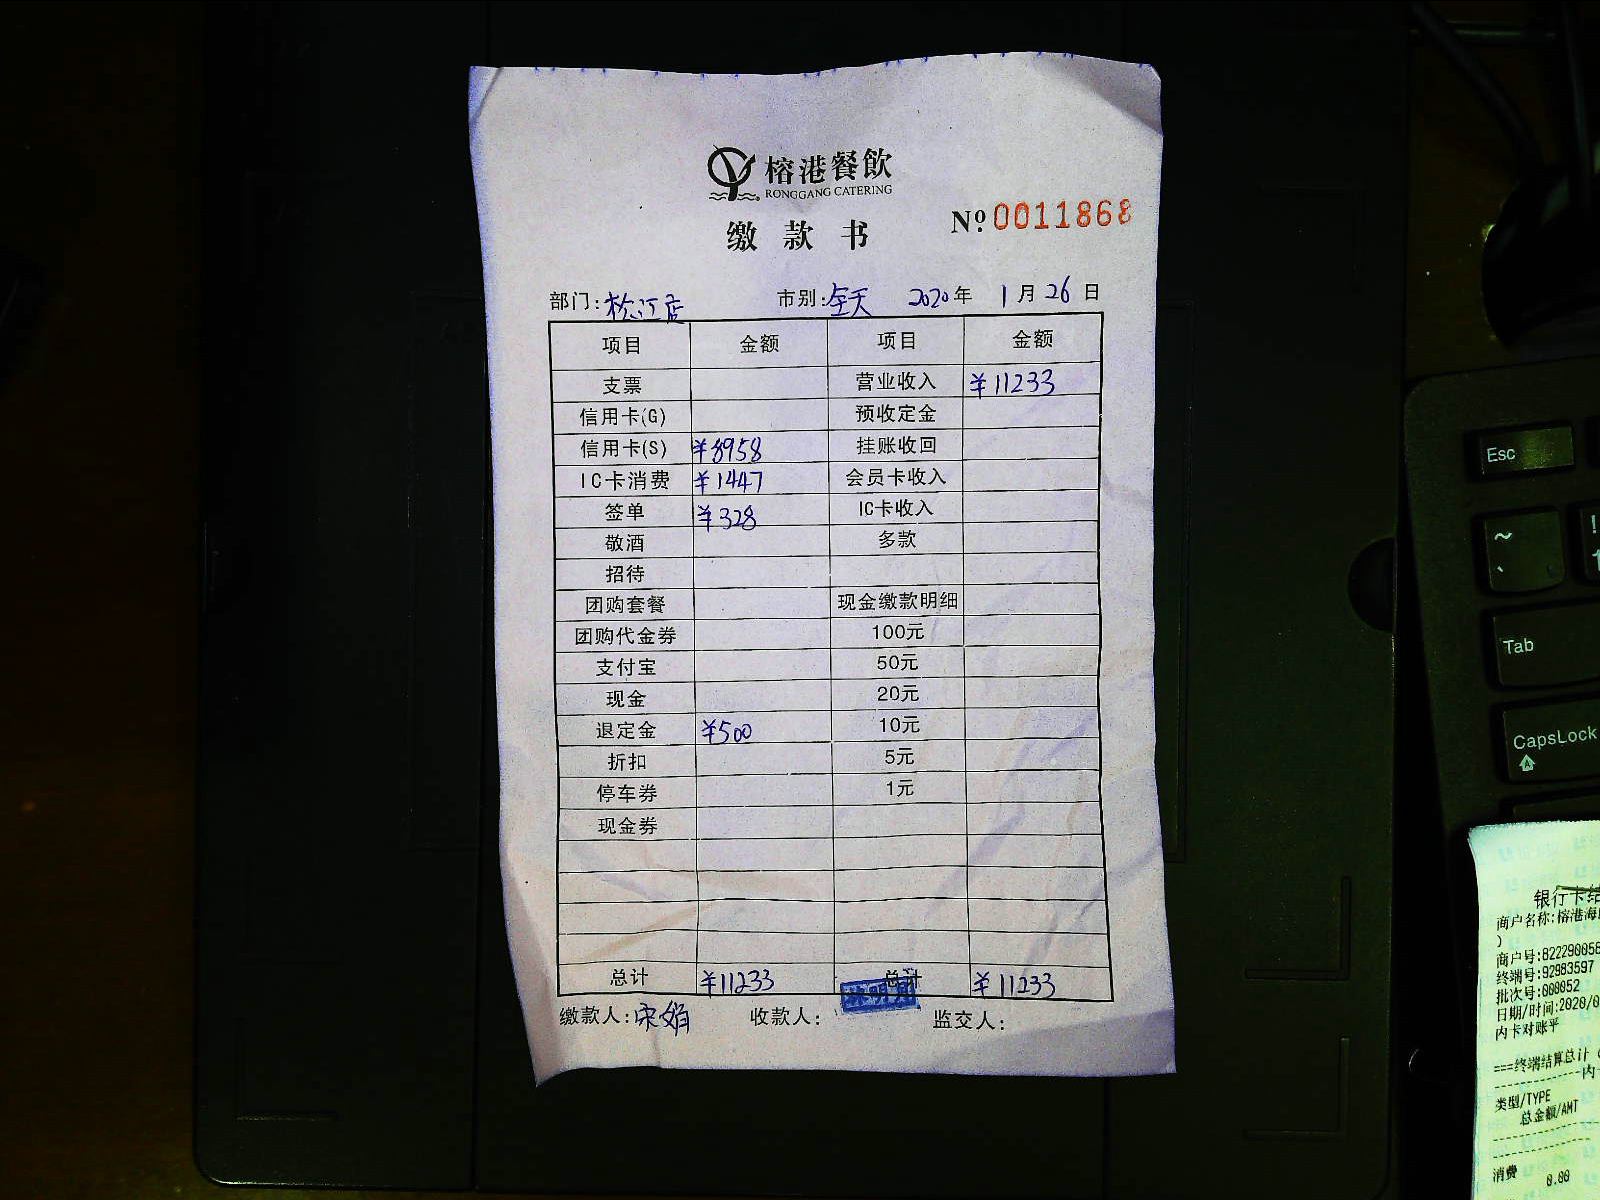 榕港餐飲
RONGGANG CATERING
缴款书
Nº.0011868
部门:松江店 市别:全天 2020年 1月26日
项目 金额 项目 金额
支票 营业收入 ¥11233
信用卡(G) 预收定金
信用卡(S) ¥8958 挂账收回
IC卡消费 ¥1447 会员卡收入
签单 ¥328 IC卡收入
敬酒 多款
招待
团购套餐 现金缴款明细
团购代金券 100元
支付宝 50元
现金 20元
退定金 ¥500 10元
折扣 5元
停车券 1元
现金券
总计 ¥11233 总计 ¥11233
缴款人:宋娟 收款人: 监交人:
Esc
~
Tab
CapsLock
银行卡结
商户名称:榕港海
)
商户号:822290058
终端号:92983597
批次号:000052
日期/时间:2020/0
内卡对账平
===终端结算总计
内
类型/TYPE
总金额/AMT
消费 0.00